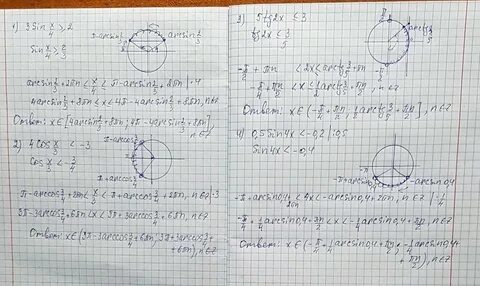 1) 3 sin x/4 ≥ 2
sin x/4 ≥ 2/3
π-arcsin 2/3 arcsin 2/3
arcsin 2/3 + 2πn ≤ x/4 ≤ π - arcsin 2/3 + 2πn |·4
4arcsin 2/3 + 8πn ≤ x ≤ 4π - 4arcsin 2/3 + 8πn, n∈Z
Ответ: x∈[4arcsin 2/3 + 8πn; 4π - 4arcsin 2/3 + 8πn]
n∈Z
2) 4 cos x/3 < -3
cos x/3 < -3/4
π-arccos 3/4
π+arccos 3/4
π - arccos 3/4 + 2πn < x/3 < π + arccos 3/4 + 2πn, n∈Z |·3
3π - 3arccos 3/4 + 6πn < x < 3π + 3arccos 3/4 + 6πn, n∈Z
Ответ: x∈(3π - 3arccos 3/4 + 6πn; 3π + 3arccos 3/4 +
+ 6πn), n∈Z
3) 5 tg 2x ≤ 3
tg 2x ≤ 3/5
π/2 arctg 3/5
-π/2
-π/2 + πn < 2x ≤ arctg 3/5 + πn
-π/4 + πn/2 < x ≤ 1/2 arctg 3/5 + πn/2
Ответ: x∈(-π/4 + πn/2; 1/2 arctg 3/5 + πn/2], n∈Z
4) 0,5 sin 4x < -0,2 |:0,5
sin 4x < -0,4
-π+arcsin 0,4 -arcsin 0,4
-π + arcsin 0,4 + 2πn < 4x < -arcsin 0,4 + 2πn, n∈Z |·1/4
-π/4 + 1/4 arcsin 0,4 + πn/2 < x < -1/4 arcsin 0,4 + πn/2, n∈Z
Ответ: x∈(-π/4 + 1/4 arcsin 0,4 + πn/2; -1/4 arcsin 0,4 +
+ πn/2), n∈Z